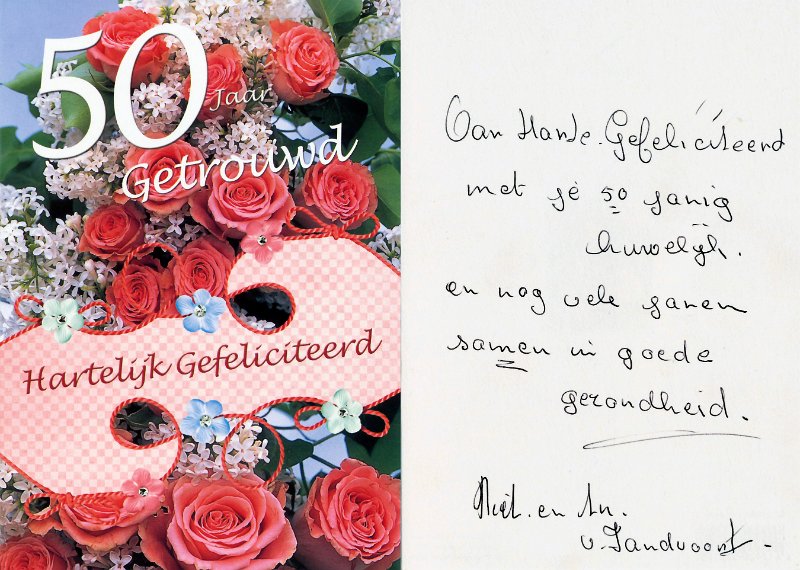 50
Jaar
Getrouwd
Hartelijk Gefeliciteerd
Van Harte Gefeliciteerd
met je 50 jarig
huwelijk.
en nog vele jaren
samen in goede
gezondheid.
en An.
v. Zandvoort.